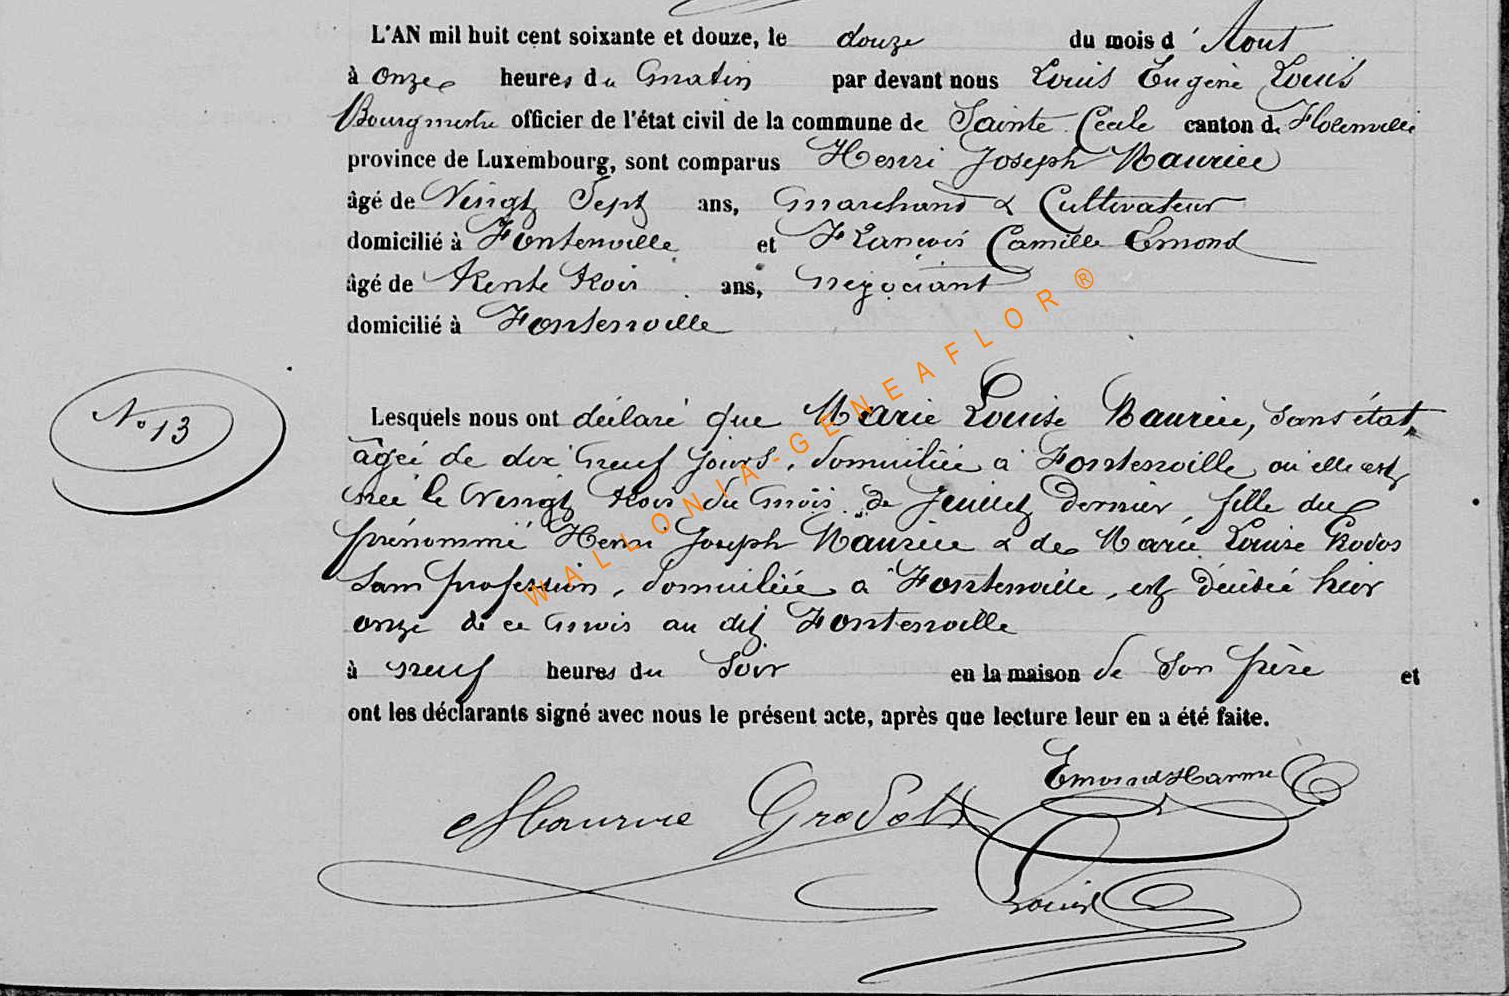 L'AN mil huit cent soixante et douze, le douze du mois d'Aout
à onze heures du matin par devant nous Louis Eugène Louis
Bourgmestre officier de l'état civil de la commune de Sainte Cécile canton de Florenville
province de Luxembourg, sont comparus Henri Joseph Mauricе
âgé de Vingt Sept ans, marchand & Cultivateur
domicilié à Fontenoille et François Camille Emond
âgé de trente trois ans, négociant
domicilié à Fontenoille
N° 13
Lesquels nous ont déclaré que Marie Louise Maurice, sans état
âgée de dix neuf jours, domiciliée à Fontenoille où elle est
née le vingt trois du mois de Juillet dernier, fille du
prénommé Henri Joseph Maurice & de Marie Louise
sans profession, domiciliée à Fontenoille, est décédée hier
onze de ce mois au dit Fontenoille
à neuf heures du soir en la maison de son père et
ont les déclarants signé avec nous le présent acte, après que lecture leur en a été faite.
Emond Harmel
Maurice Grodos
Louis
WALLONIA-GENEAFLOR ®